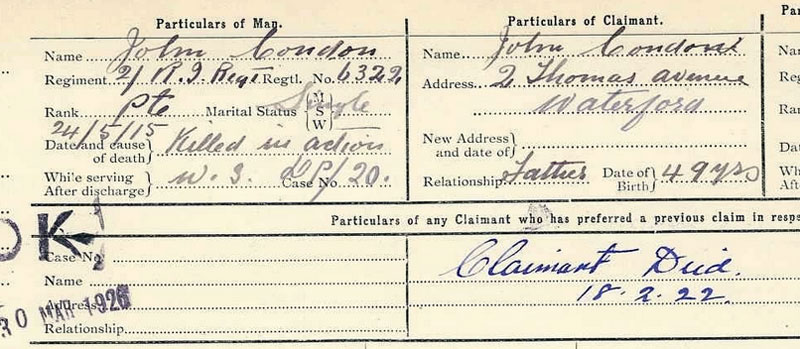 Particulars of Man.
Name John Condon
Regiment 2/ R.I. Regt. Regtl. No. 6322.
Rank Pte Marital Status Single { M S W }
24/5/15
Date and cause of death } Killed in action
While serving After discharge } W. S. Case No. /20.
Particulars of Claimant.
Name John Condon
Address 2 Thomas avenue
Waterford
New Address and date of }
Relationship Father Date of Birth } 49 yrs
Par
Na
Reg
Ra
Dat
Wh
Aft
Particulars of any Claimant who has preferred a previous claim in respe
OK
Case No.
Name
Address
30 MAR 1926
Relationship
Claimant Died.
18.2.22.